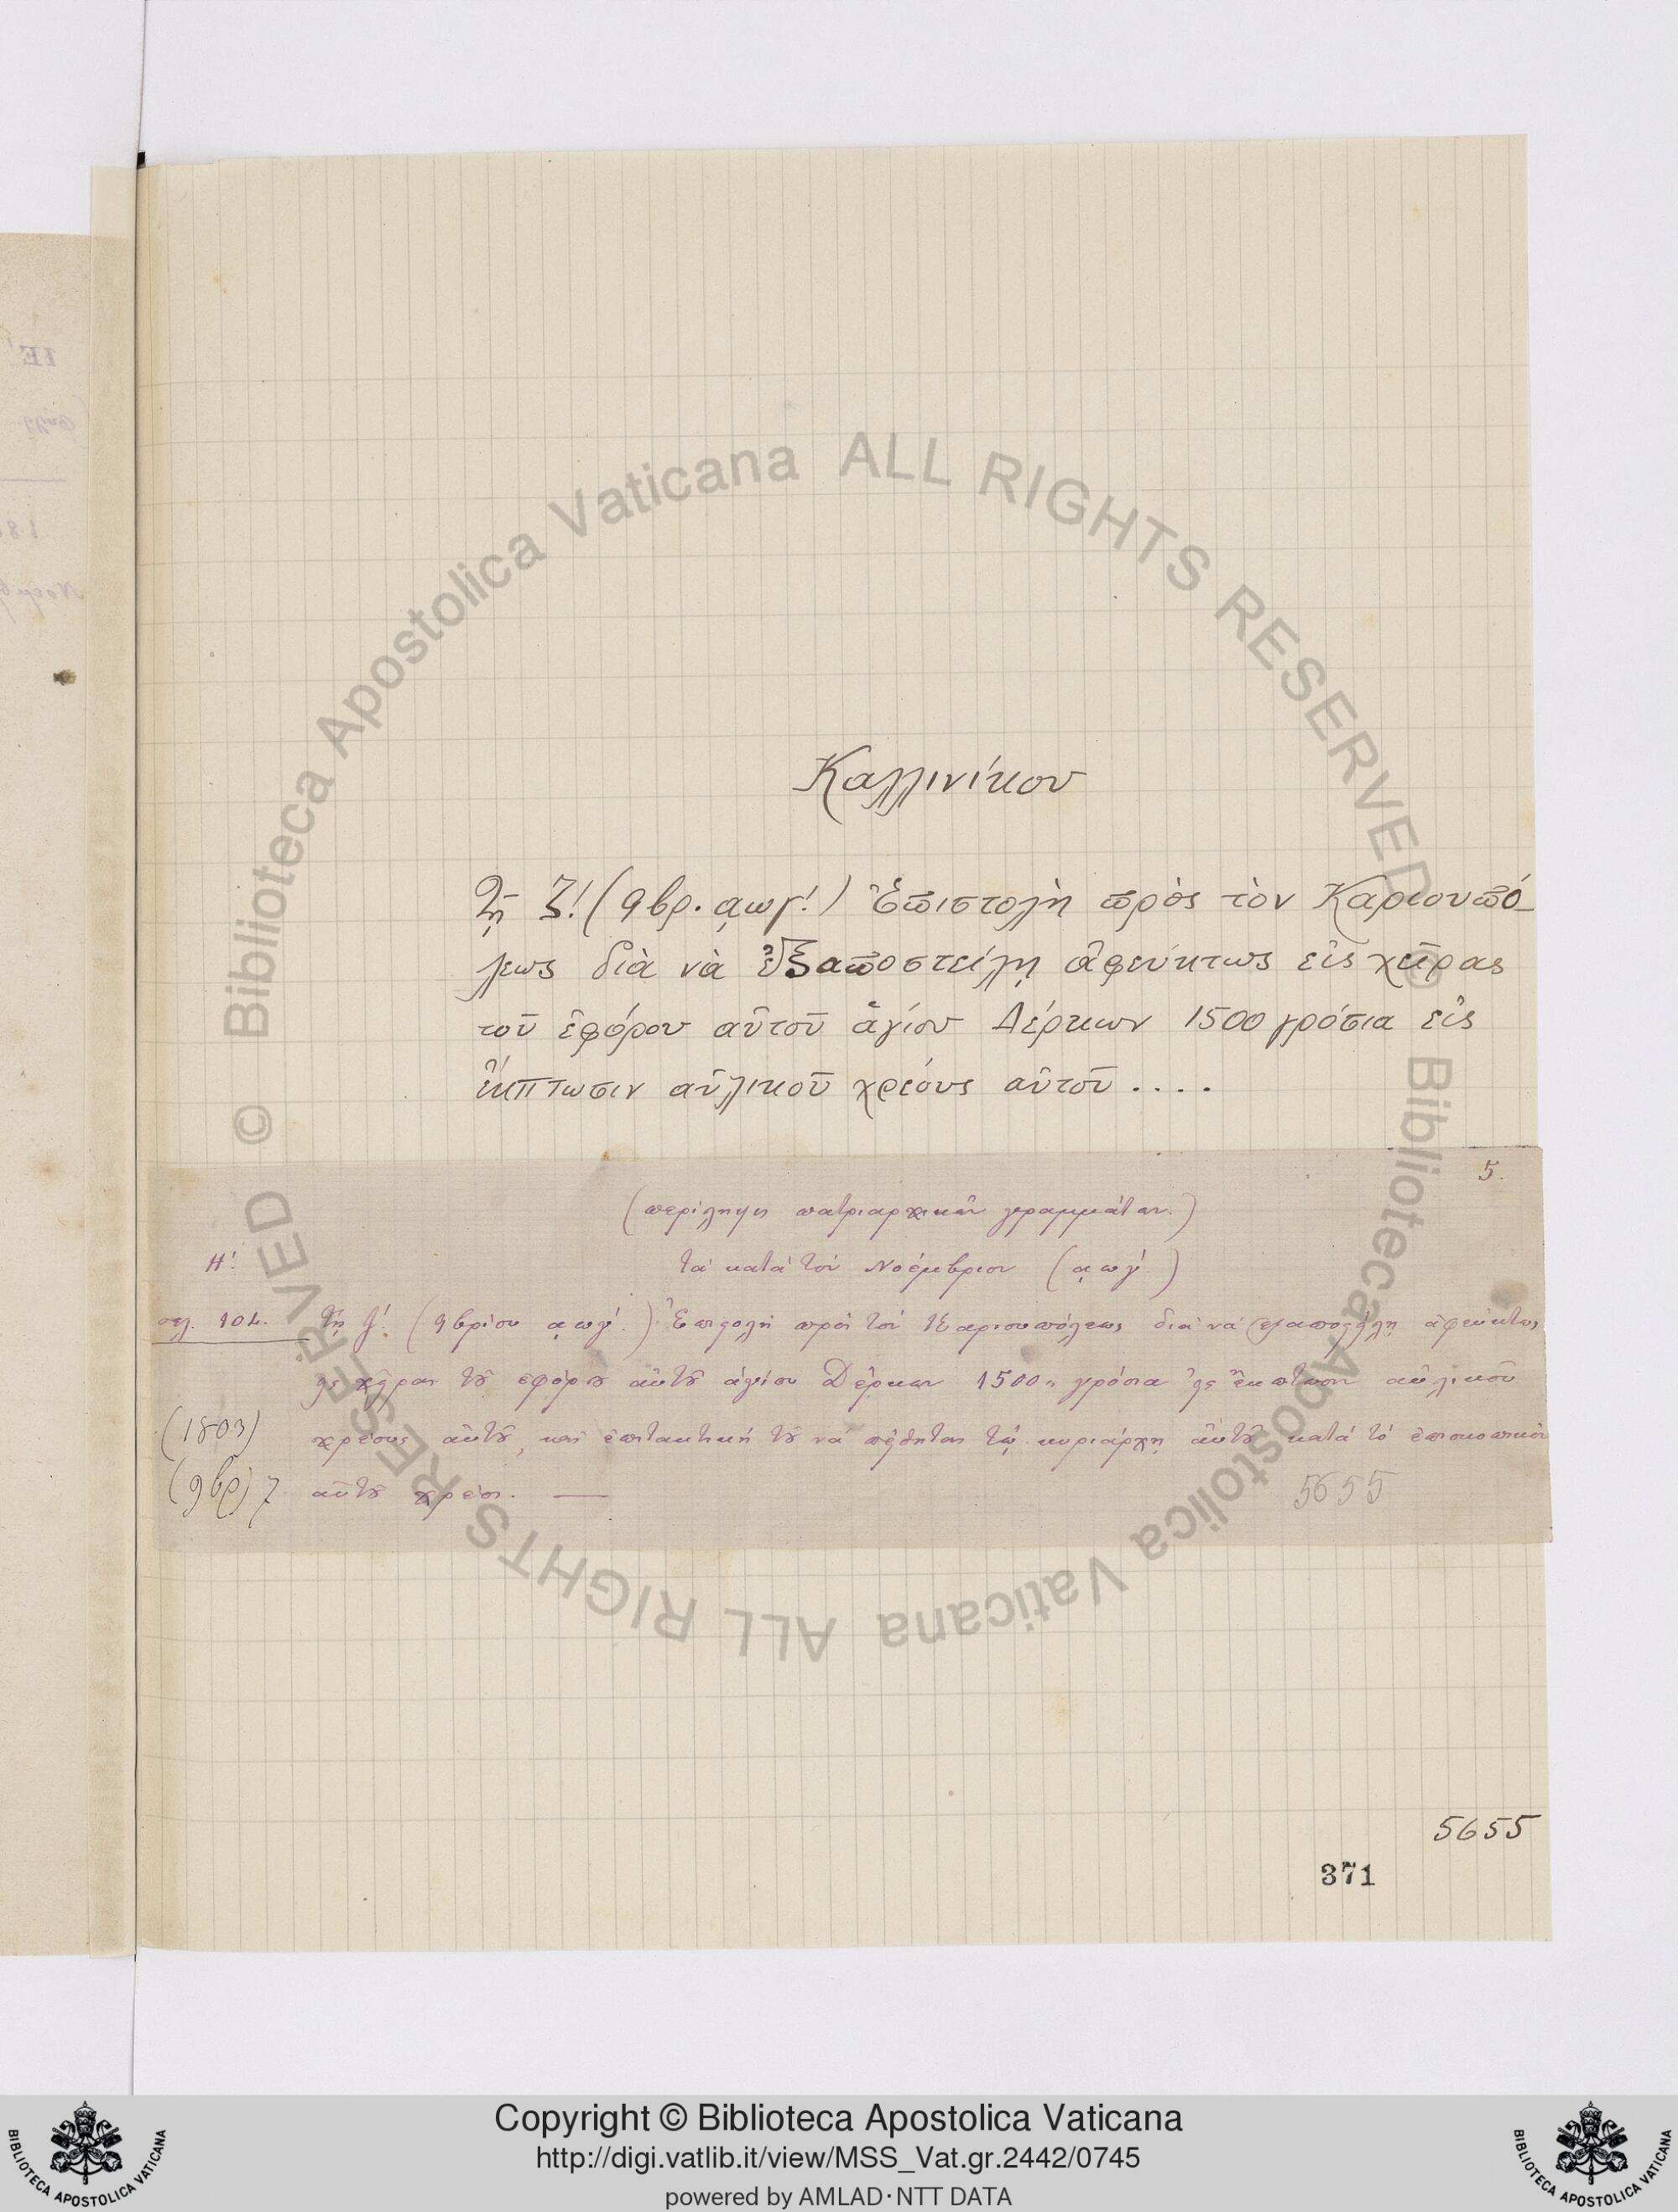 Καλλινίκου
Τῇ ζ! (9βρ. αωγ!) Ἐπιστολὴ πρὸς τὸν Καριουπό-
λεως διὰ νὰ ἐξαποστείλῃ ἀφεύκτως εἰς χεῖρας
τοῦ ἐφόρου αὐτοῦ ἁγίου Δέρκων 1500 γρόσια εἰς
ἔκπτωσιν αὐλικοῦ χρέους αὐτοῦ ....
5.
(περίληψις πατριαρχικῶν γραμμάτων.)
Η! τὰ κατὰ τὸν Νοέμβριον (αωγ!)
σελ. 102. τῇ ζ!. (9βρίου αωγ!.) Ἐπιστολὴ πρὸς τὸν Καριουπόλεως διὰ νὰ ἐξαποστείλῃ ἀφεύκτως
εἰς χεῖρας τοῦ ἐφόρου αὐτοῦ ἁγίου Δέρκων 1500 γρόσια εἰς ἔκπτωσιν αὐλικοῦ
(1803) χρέους αὐτοῦ, καὶ ἐπιτακτικὴ τοῦ νὰ πείθηται τῷ κυριάρχῃ αὐτοῦ κατὰ τὸ ἐπισκοπικὸν
(9βρ) 7 αὐτοῦ χρέος. —
5655
5655
371
© Biblioteca Apostolica Vaticana ALL RIGHTS RESERVED
© Biblioteca Apostolica Vaticana ALL RIGHTS RESERVED
BIBLIOTECA APOSTOLICA VATICANA
Copyright © Biblioteca Apostolica Vaticana
http://digi.vatlib.it/view/MSS_Vat.gr.2442/0745
powered by AMLAD·NTT DATA
BIBLIOTECA APOSTOLICA VATICANA